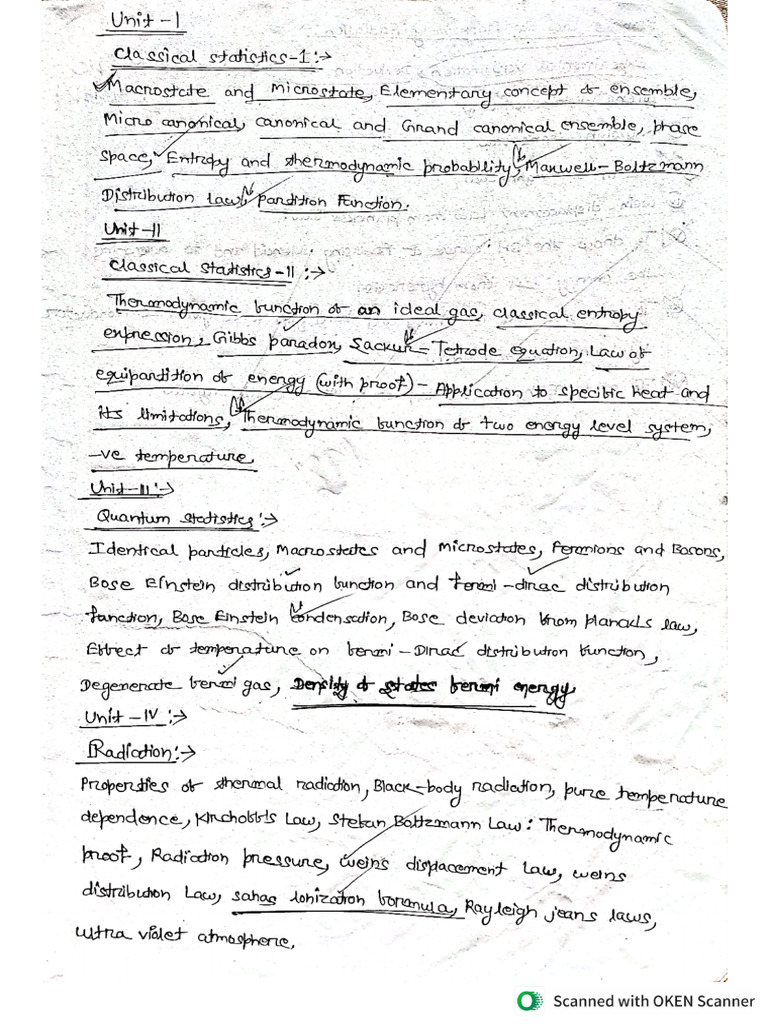 Unit-I
Classical statistics-1:→
Macrostate and Microstate, Elementary concept of ensemble,
Micro canonical, canonical and Grand canonical ensemble, phase
space, Entropy and thermodynamic probability, Maxwell-Boltzmann
Distribution law, partition Function.
Unit-II
Classical Statistics-II:→
Thermodynamic function of an ideal gas, classical entropy
expression, Gibbs paradox, Sackur-Tetrode equation, Law of
equipartition of energy (with proof)- Application to specific heat and
its limitations, Thermodynamic function of two energy level system,
-ve temperature
Unit-III:→
Quantum statistics:→
Identical particles, Macrostates and microstates, Fermions and Bosons,
Bose Einstein distribution function and fermi-dirac distribution
function, Bose Einstein condensation, Bose deviation from plancks law,
Effect of temperature on fermi-Dirac distribution function,
Degenerate fermi gas, Density of states fermi energy
Unit-IV:→
Radiation:→
Properties of thermal radiation, Black-body radiation, pure temperature
dependence, Kirchoffs Law, Stefan Boltzmann Law: Thermodynamic
proof, Radiation pressure, weins displacement law, weins
distribution Law, sahas Ionization foramula, Rayleigh jeans laws,
ultra violet atmosphere,
Scanned with OKEN Scanner